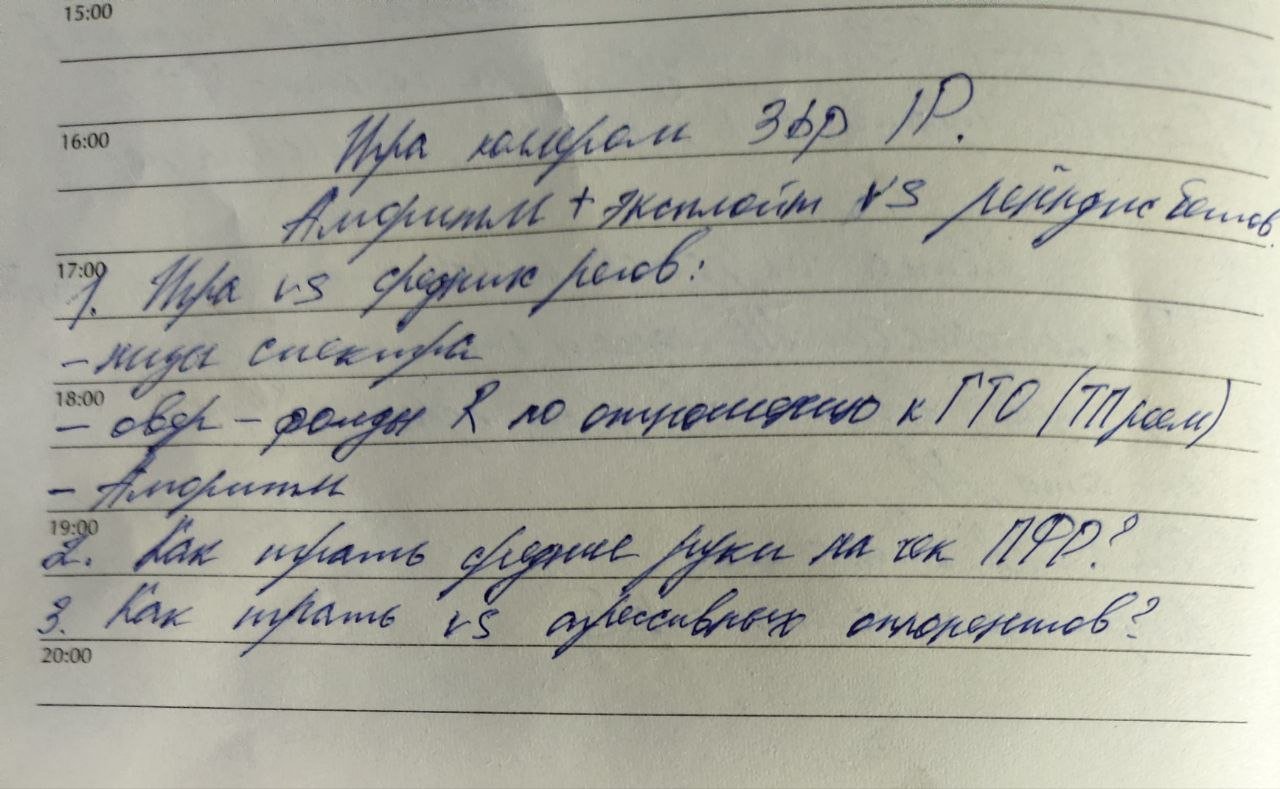 15:00
16:00
Игра коллером 3bp IP.
Алгоритм + эксплойт vs рейндж бетов.
17:00
1. Игра vs средних регов:
- виды спектра
18:00
- овер-фолды R по отношению к ГТО (ТПром)
- Алгоритм
19:00
2. Как играть средние руки на чек ПФР?
3. Как играть vs агрессивных оппонентов?
20:00